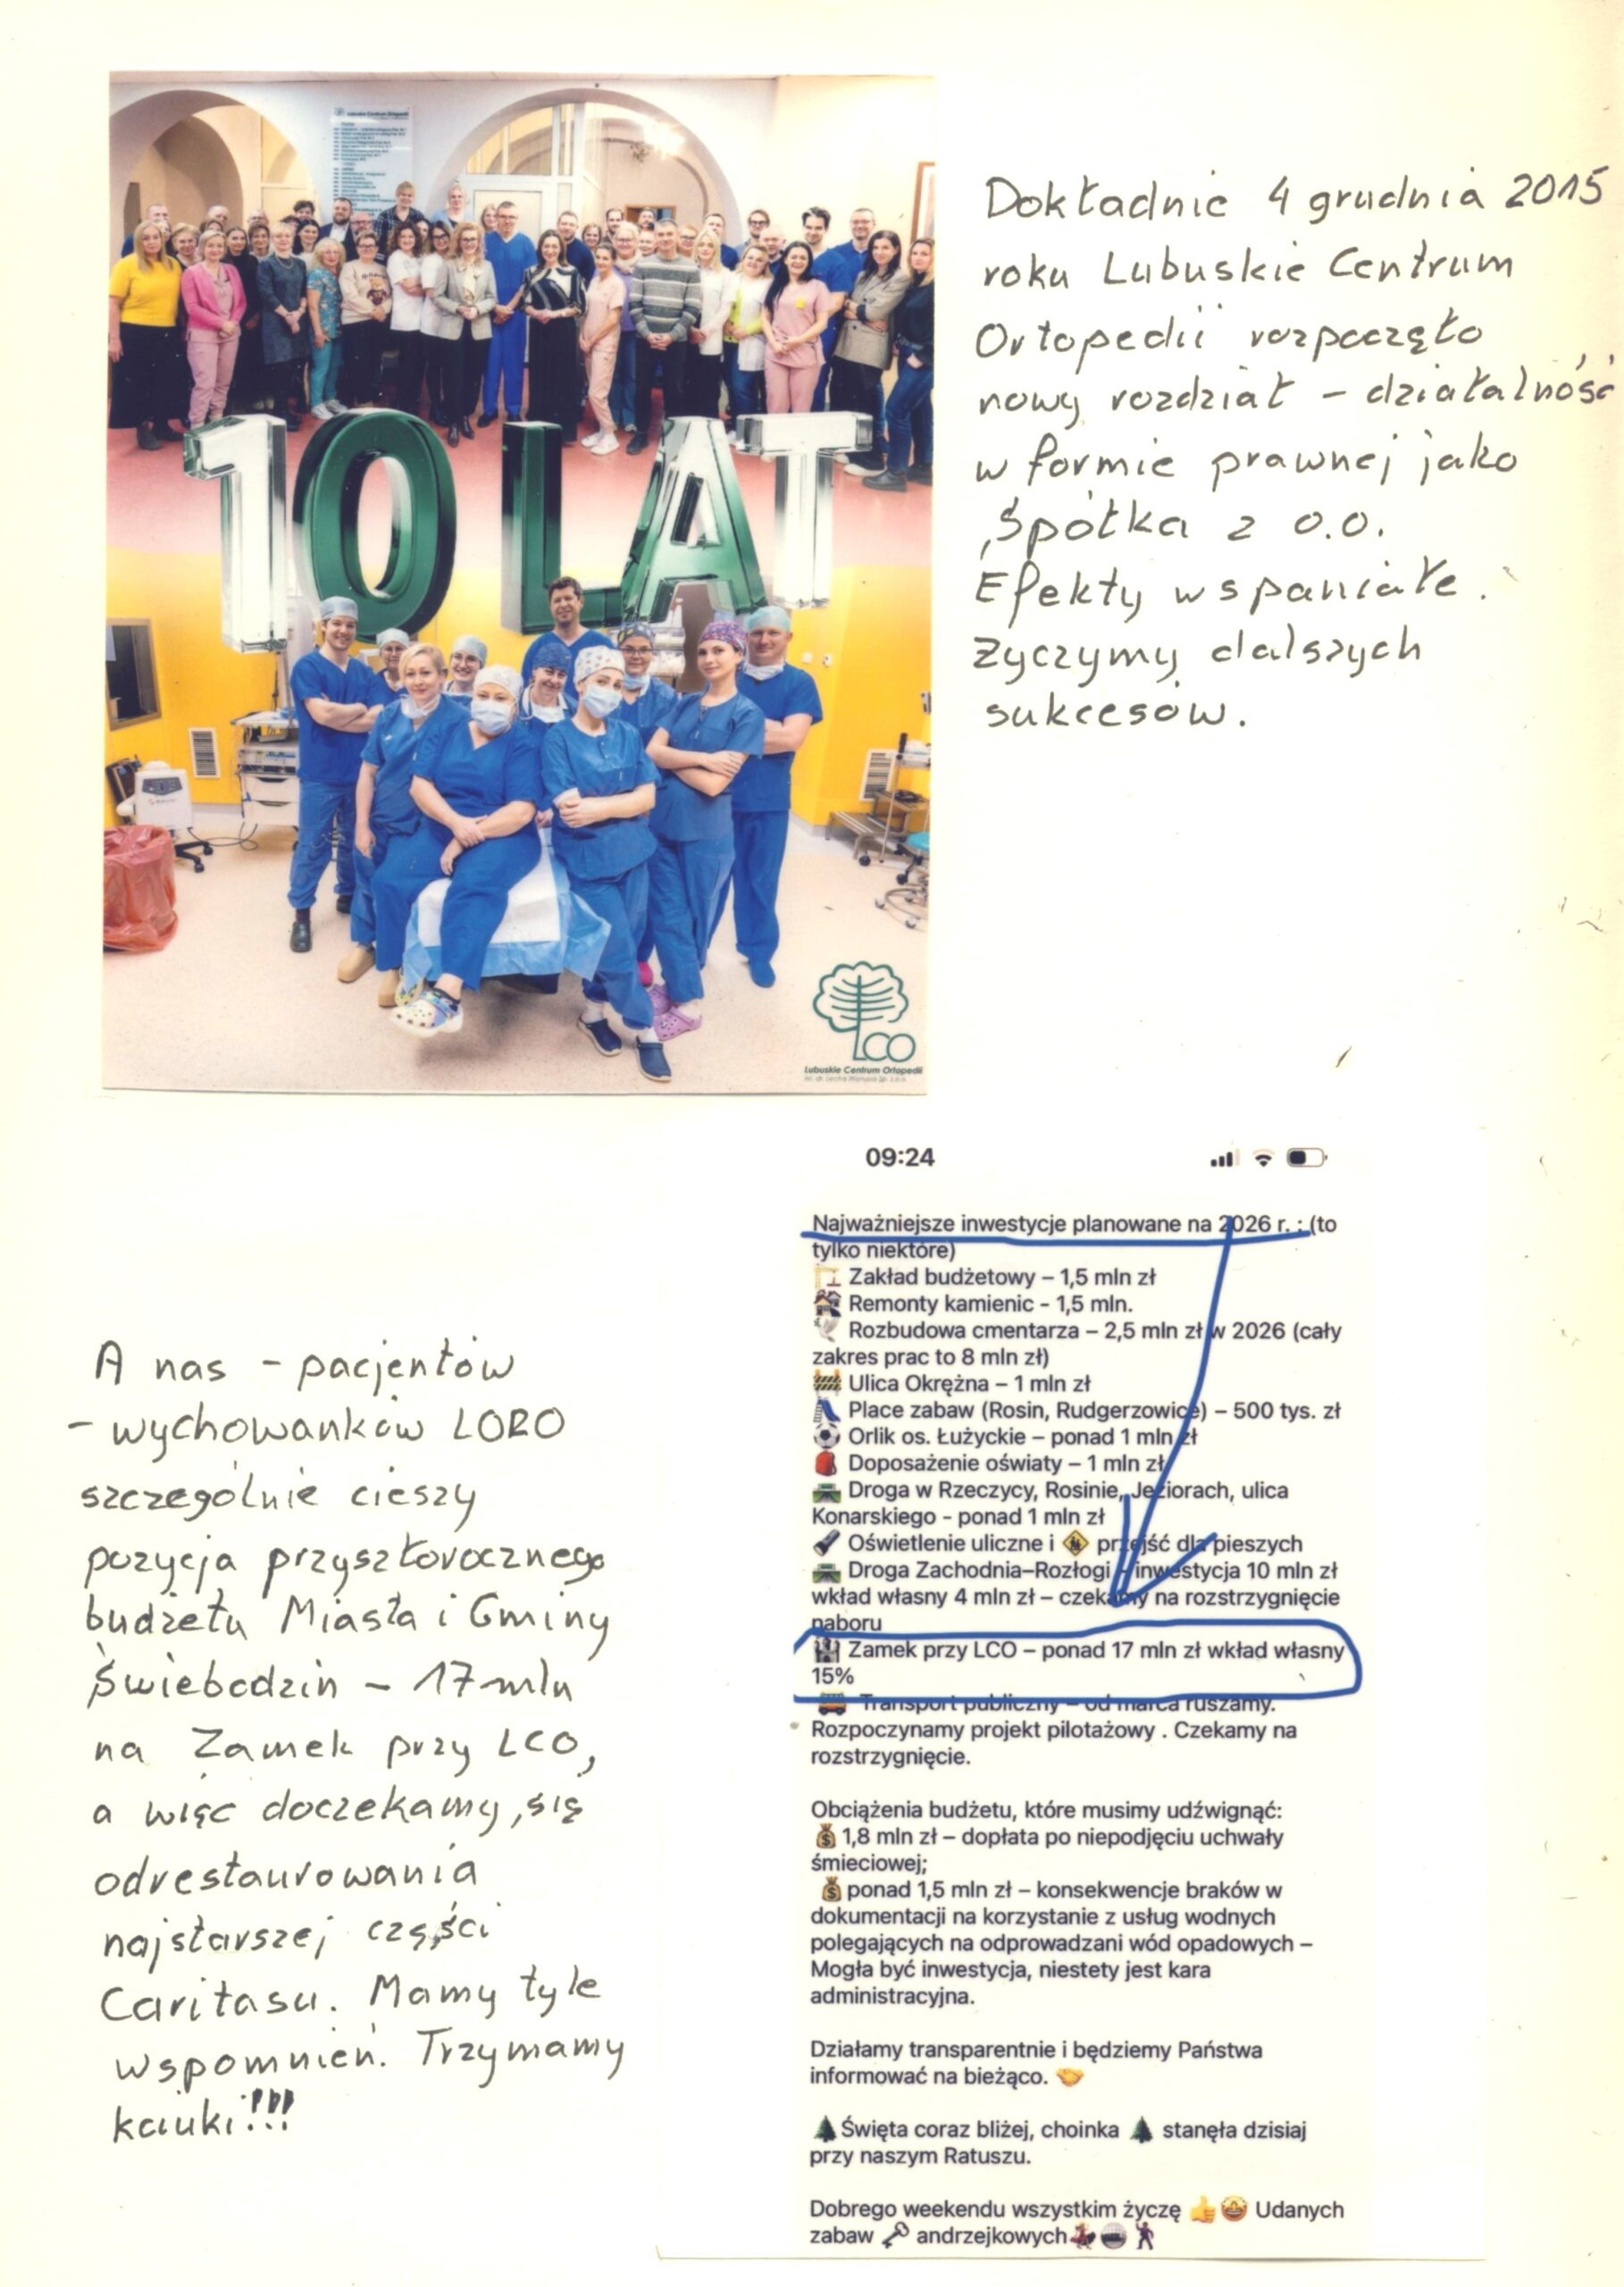 Lubuskie Centrum Ortopedii
10 LAT
LCO
Lubuskie Centrum Ortopedii
Dokładnie 4 grudnia 2015
roku Lubuskie Centrum
Ortopedii rozpoczęło
nowy rozdział - działalność
w formie prawnej jako
Spółka z o.o.
Efekty wspaniałe.
Życzymy dalszych
sukcesów.
09:24
Najważniejsze inwestycje planowane na 2026 r. : (to
tylko niektóre)
🏗️ Zakład budżetowy – 1,5 mln zł
🏘️ Remonty kamienic - 1,5 mln.
🕊️ Rozbudowa cmentarza – 2,5 mln zł w 2026 (cały
zakres prac to 8 mln zł)
🚧 Ulica Okrężna – 1 mln zł
🛝 Place zabaw (Rosin, Rudgerzowice) – 500 tys. zł
⚽ Orlik os. Łużyckie – ponad 1 mln zł
🎒 Doposażenie oświaty – 1 mln zł
🛣️ Droga w Rzeczycy, Rosinie, Jeziorach, ulica
Konarskiego - ponad 1 mln zł
🔦 Oświetlenie uliczne i 🚸 przejść dla pieszych
🛣️ Droga Zachodnia–Rozłogi - inwestycja 10 mln zł
wkład własny 4 mln zł – czekamy na rozstrzygnięcie
naboru
🏰 Zamek przy LCO – ponad 17 mln zł wkład własny
15%
🚌 Transport publiczny – od marca ruszamy.
Rozpoczynamy projekt pilotażowy . Czekamy na
rozstrzygnięcie.
Obciążenia budżetu, które musimy udźwignąć:
💰 1,8 mln zł – dopłata po niepodjęciu uchwały
śmieciowej;
💰 ponad 1,5 mln zł – konsekwencje braków w
dokumentacji na korzystanie z usług wodnych
polegających na odprowadzani wód opadowych –
Mogła być inwestycja, niestety jest kara
administracyjna.
Działamy transparentnie i będziemy Państwa
informować na bieżąco. 🤝
🌲Święta coraz bliżej, choinka 🌲 stanęła dzisiaj
przy naszym Ratuszu.
Dobrego weekendu wszystkim życzę 👍🤩 Udanych
zabaw 🗝️ andrzejkowych💃🪩🕺
A nas - pacjentów
- wychowanków LORO
szczególnie cieszy
pozycja przyszłorocznego
budżetu Miasta i Gminy
Świebodzin - 17 mln
na Zamek przy LCO,
a więc doczekamy się
odrestaurowania
najstarszej części
Caritasu. Mamy tyle
wspomnień. Trzymamy
kciuki!!!